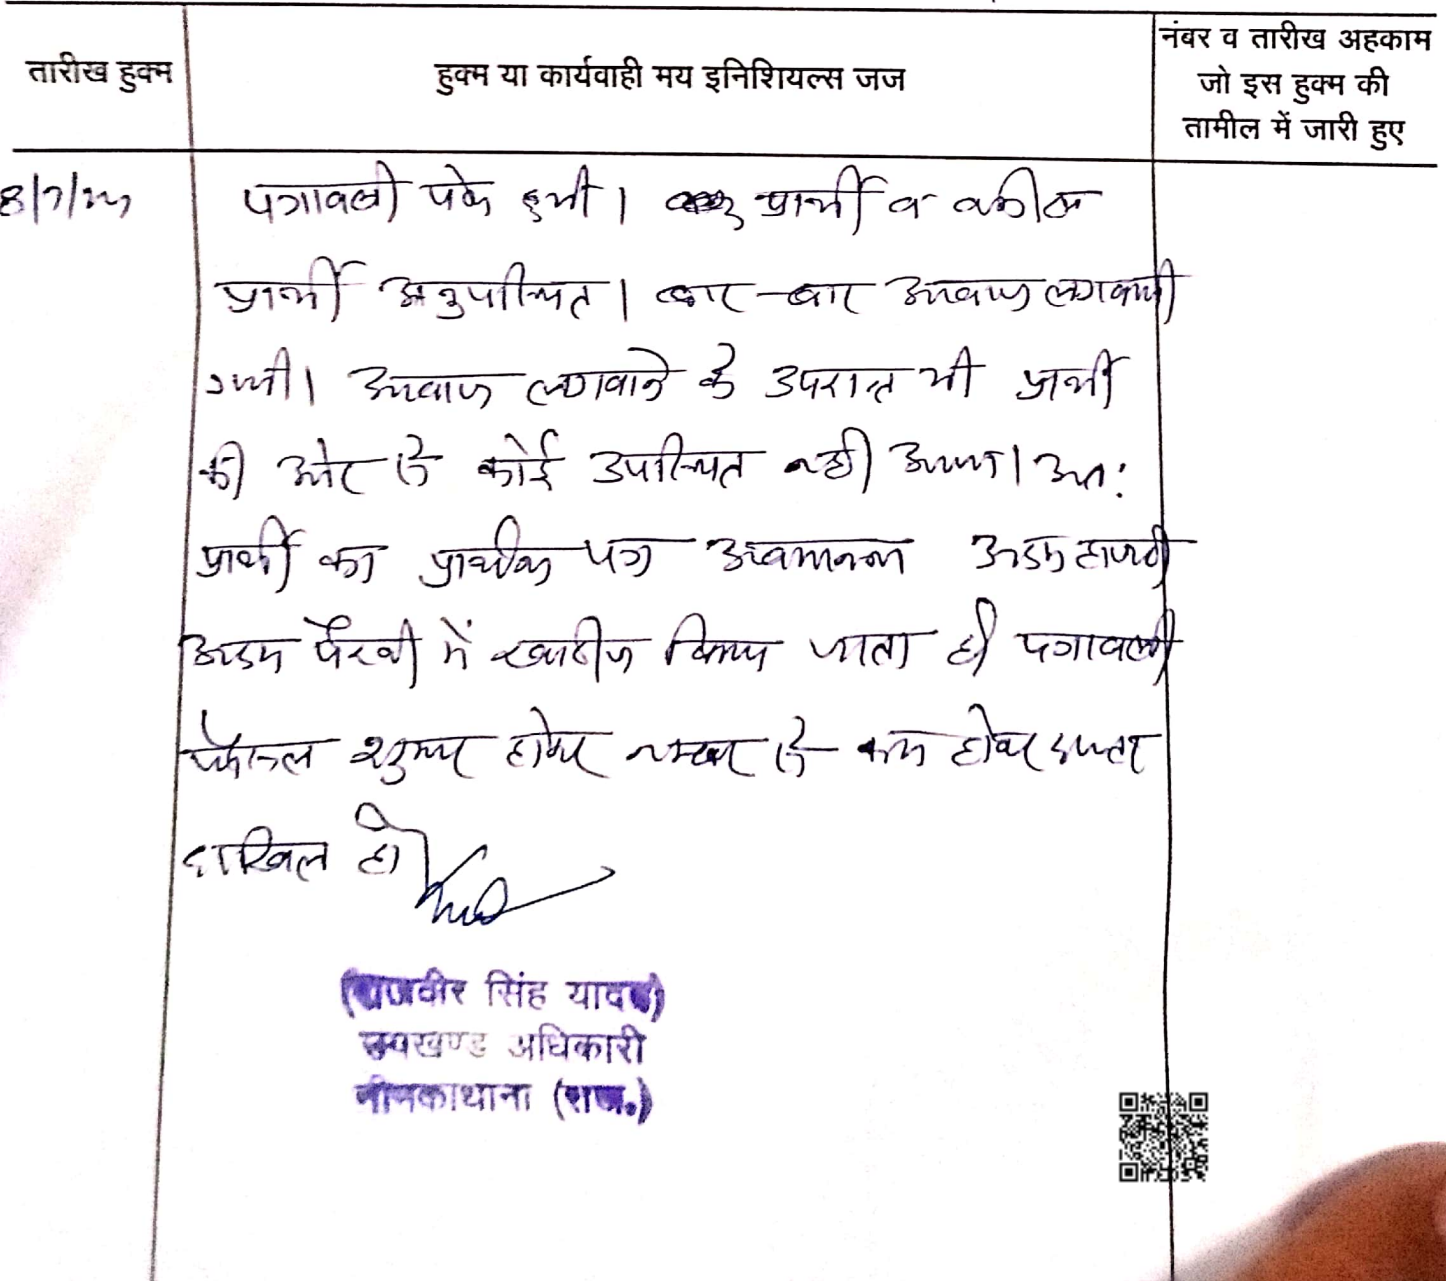 तारीख हुक्म
हुक्म या कार्यवाही मय इनिशियल्स जज
नंबर व तारीख अहकाम
जो इस हुक्म की
तामील में जारी हुए
पत्रावली पेश हुयी। प्रार्थी व वकील
प्रार्थी अनुपस्थित। बार-बार आवाज लगवायी
गयी। आवाज लगवाने के उपरान्त भी प्रार्थी
की ओर से कोई उपस्थित नहीं आया। अतः
प्रार्थी का प्रार्थना पत्र अवमानना अदम हाजरी
अदम पैरवी में खारीज किया जाता है। पत्रावली
फैसल शुमार होकर नम्बर से कम होकर दफ्तर
दाखिल हो
(राजवीर सिंह यादव)
उपखण्ड अधिकारी
नीमकाथाना (राज.)